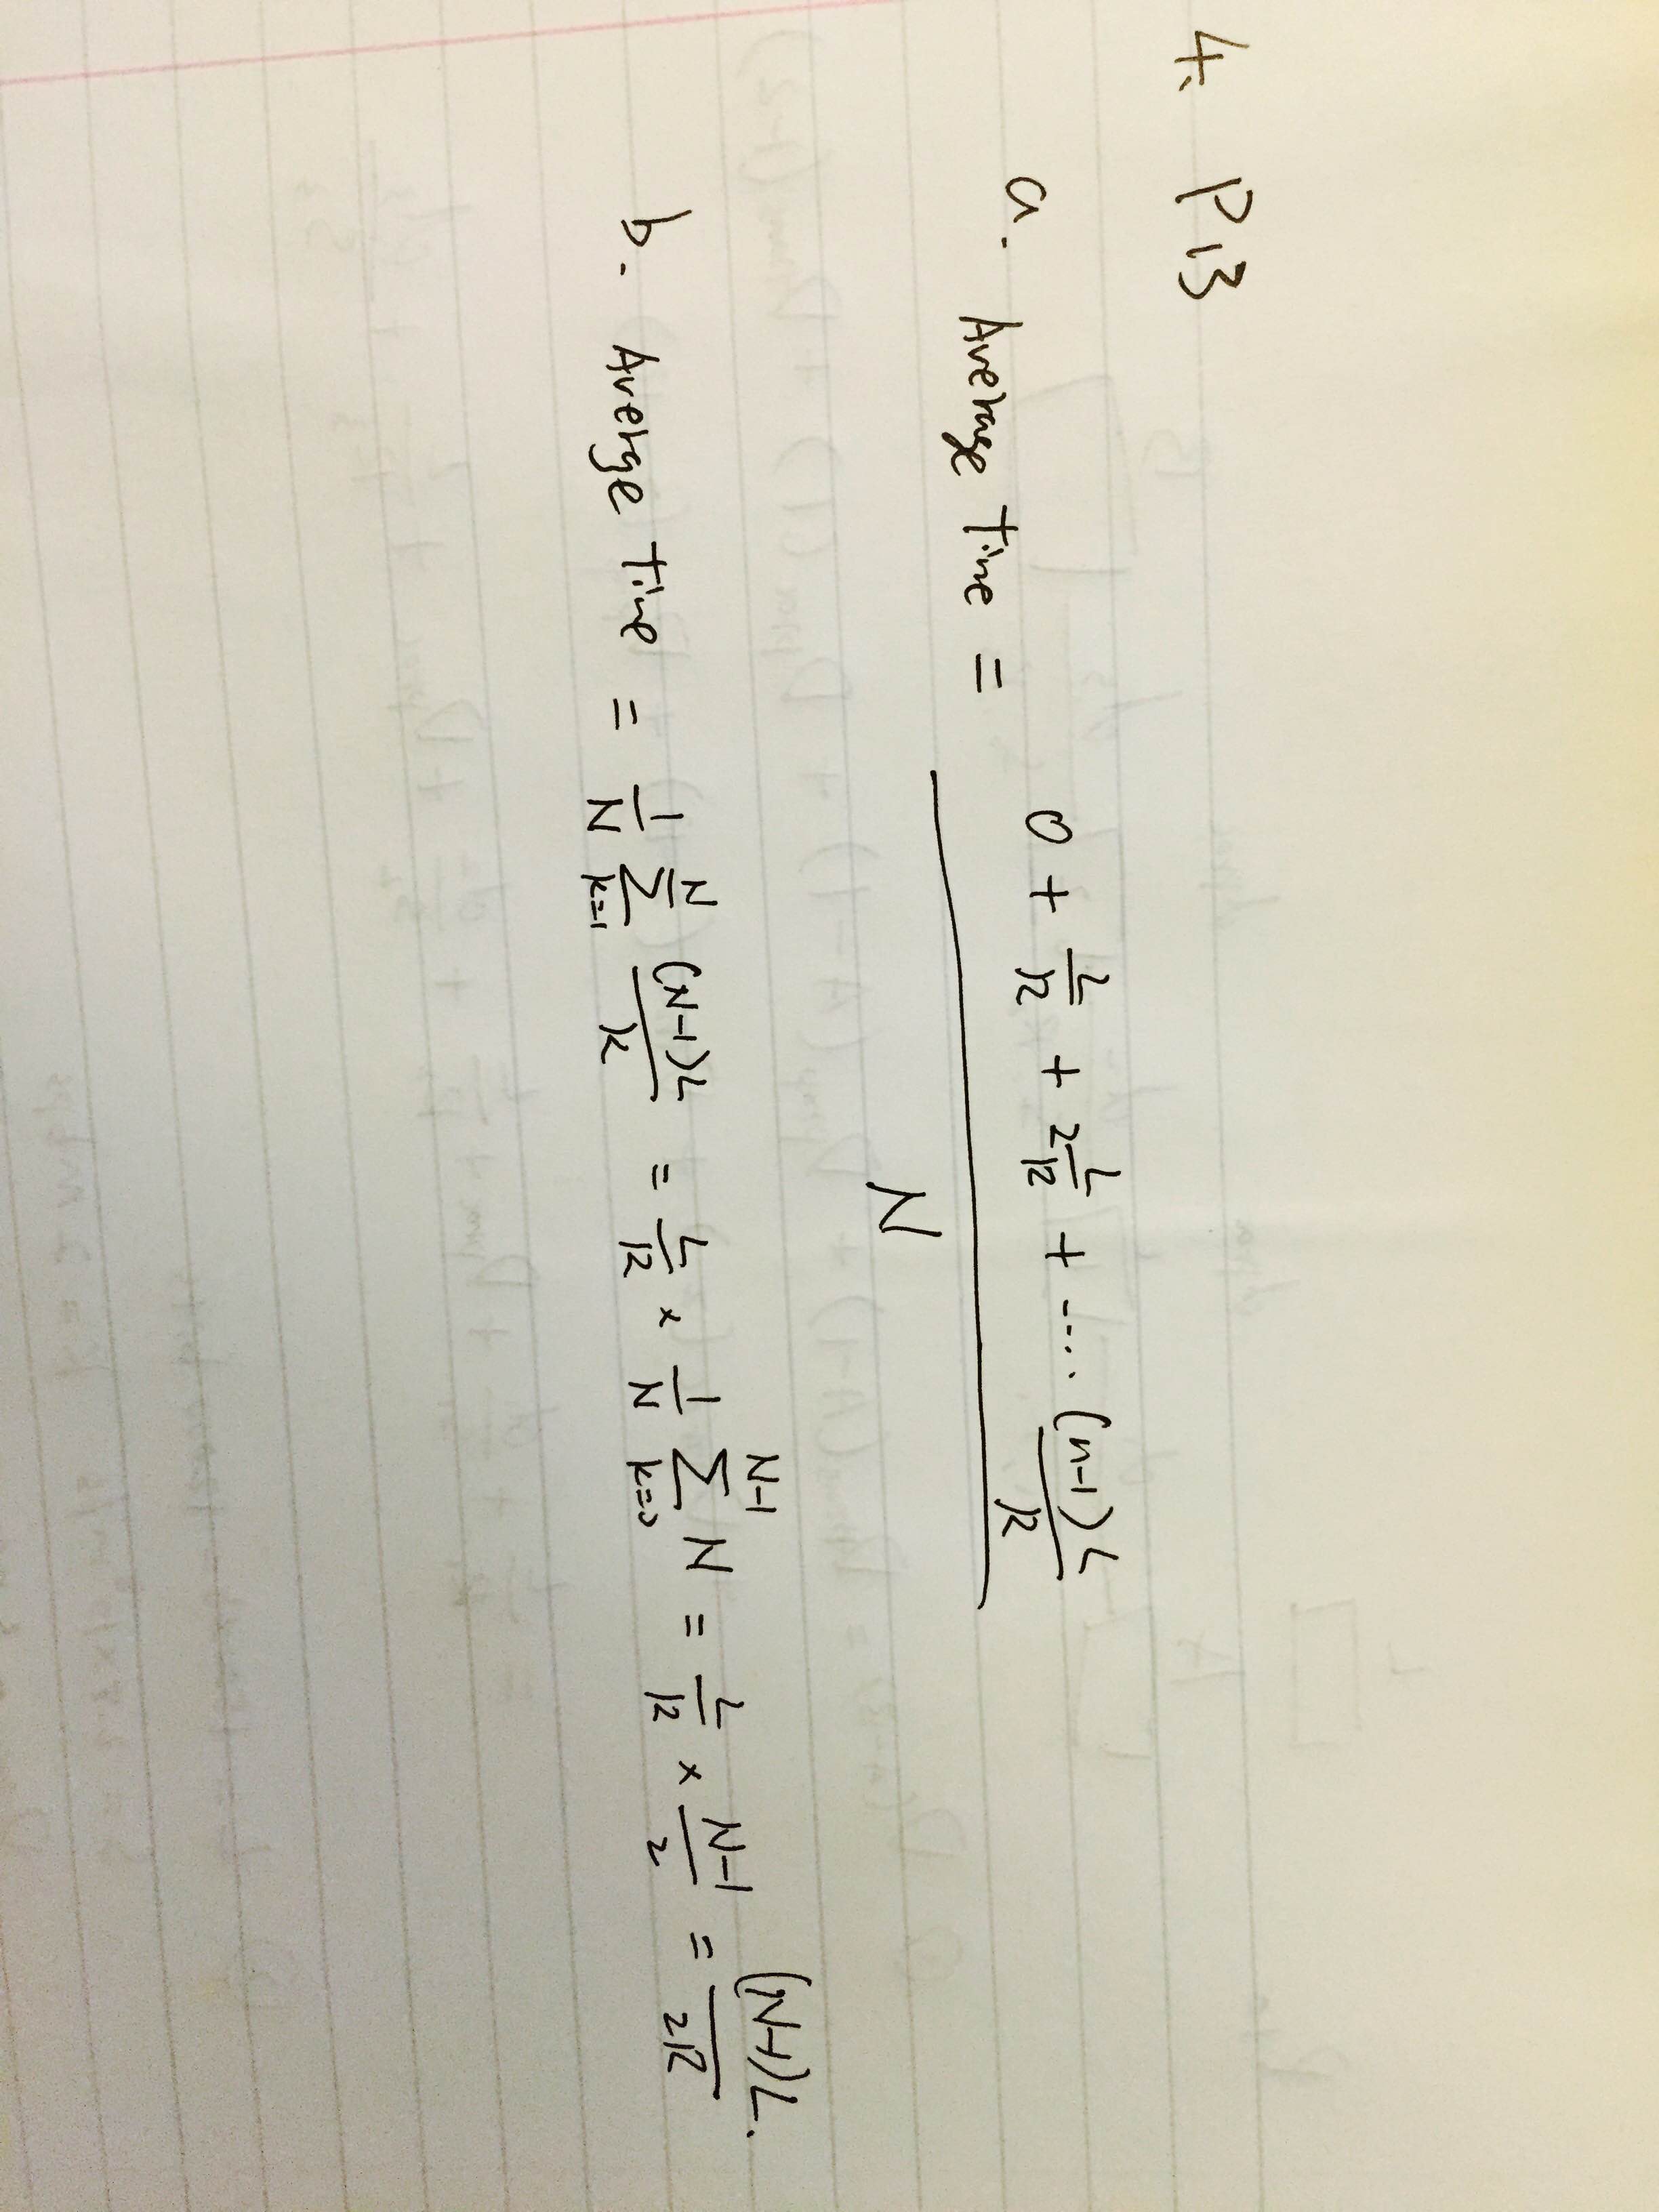 4. P13
a. Average time = (0 + L/R + 2L/R + ... (n-1)L/R) / N
b. Average time = 1/N ∑_{k=1}^{N} (N-1)L/R = L/R × 1/N ∑_{k=0}^{N-1} N = L/R × (N-1)/2 = (N-1)L/2R.